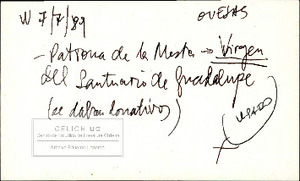 W 7/7/89
OVEJAS
- Patrona de la Mesta → Virgen
del Santuario de Guadalupe
(se daban donativos)
(USADO)
CELICH UC